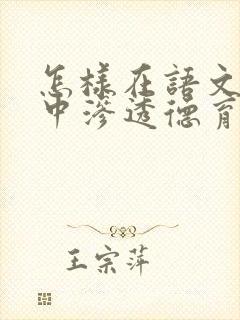 怎樣在語文
中滲透德育
王宗萍